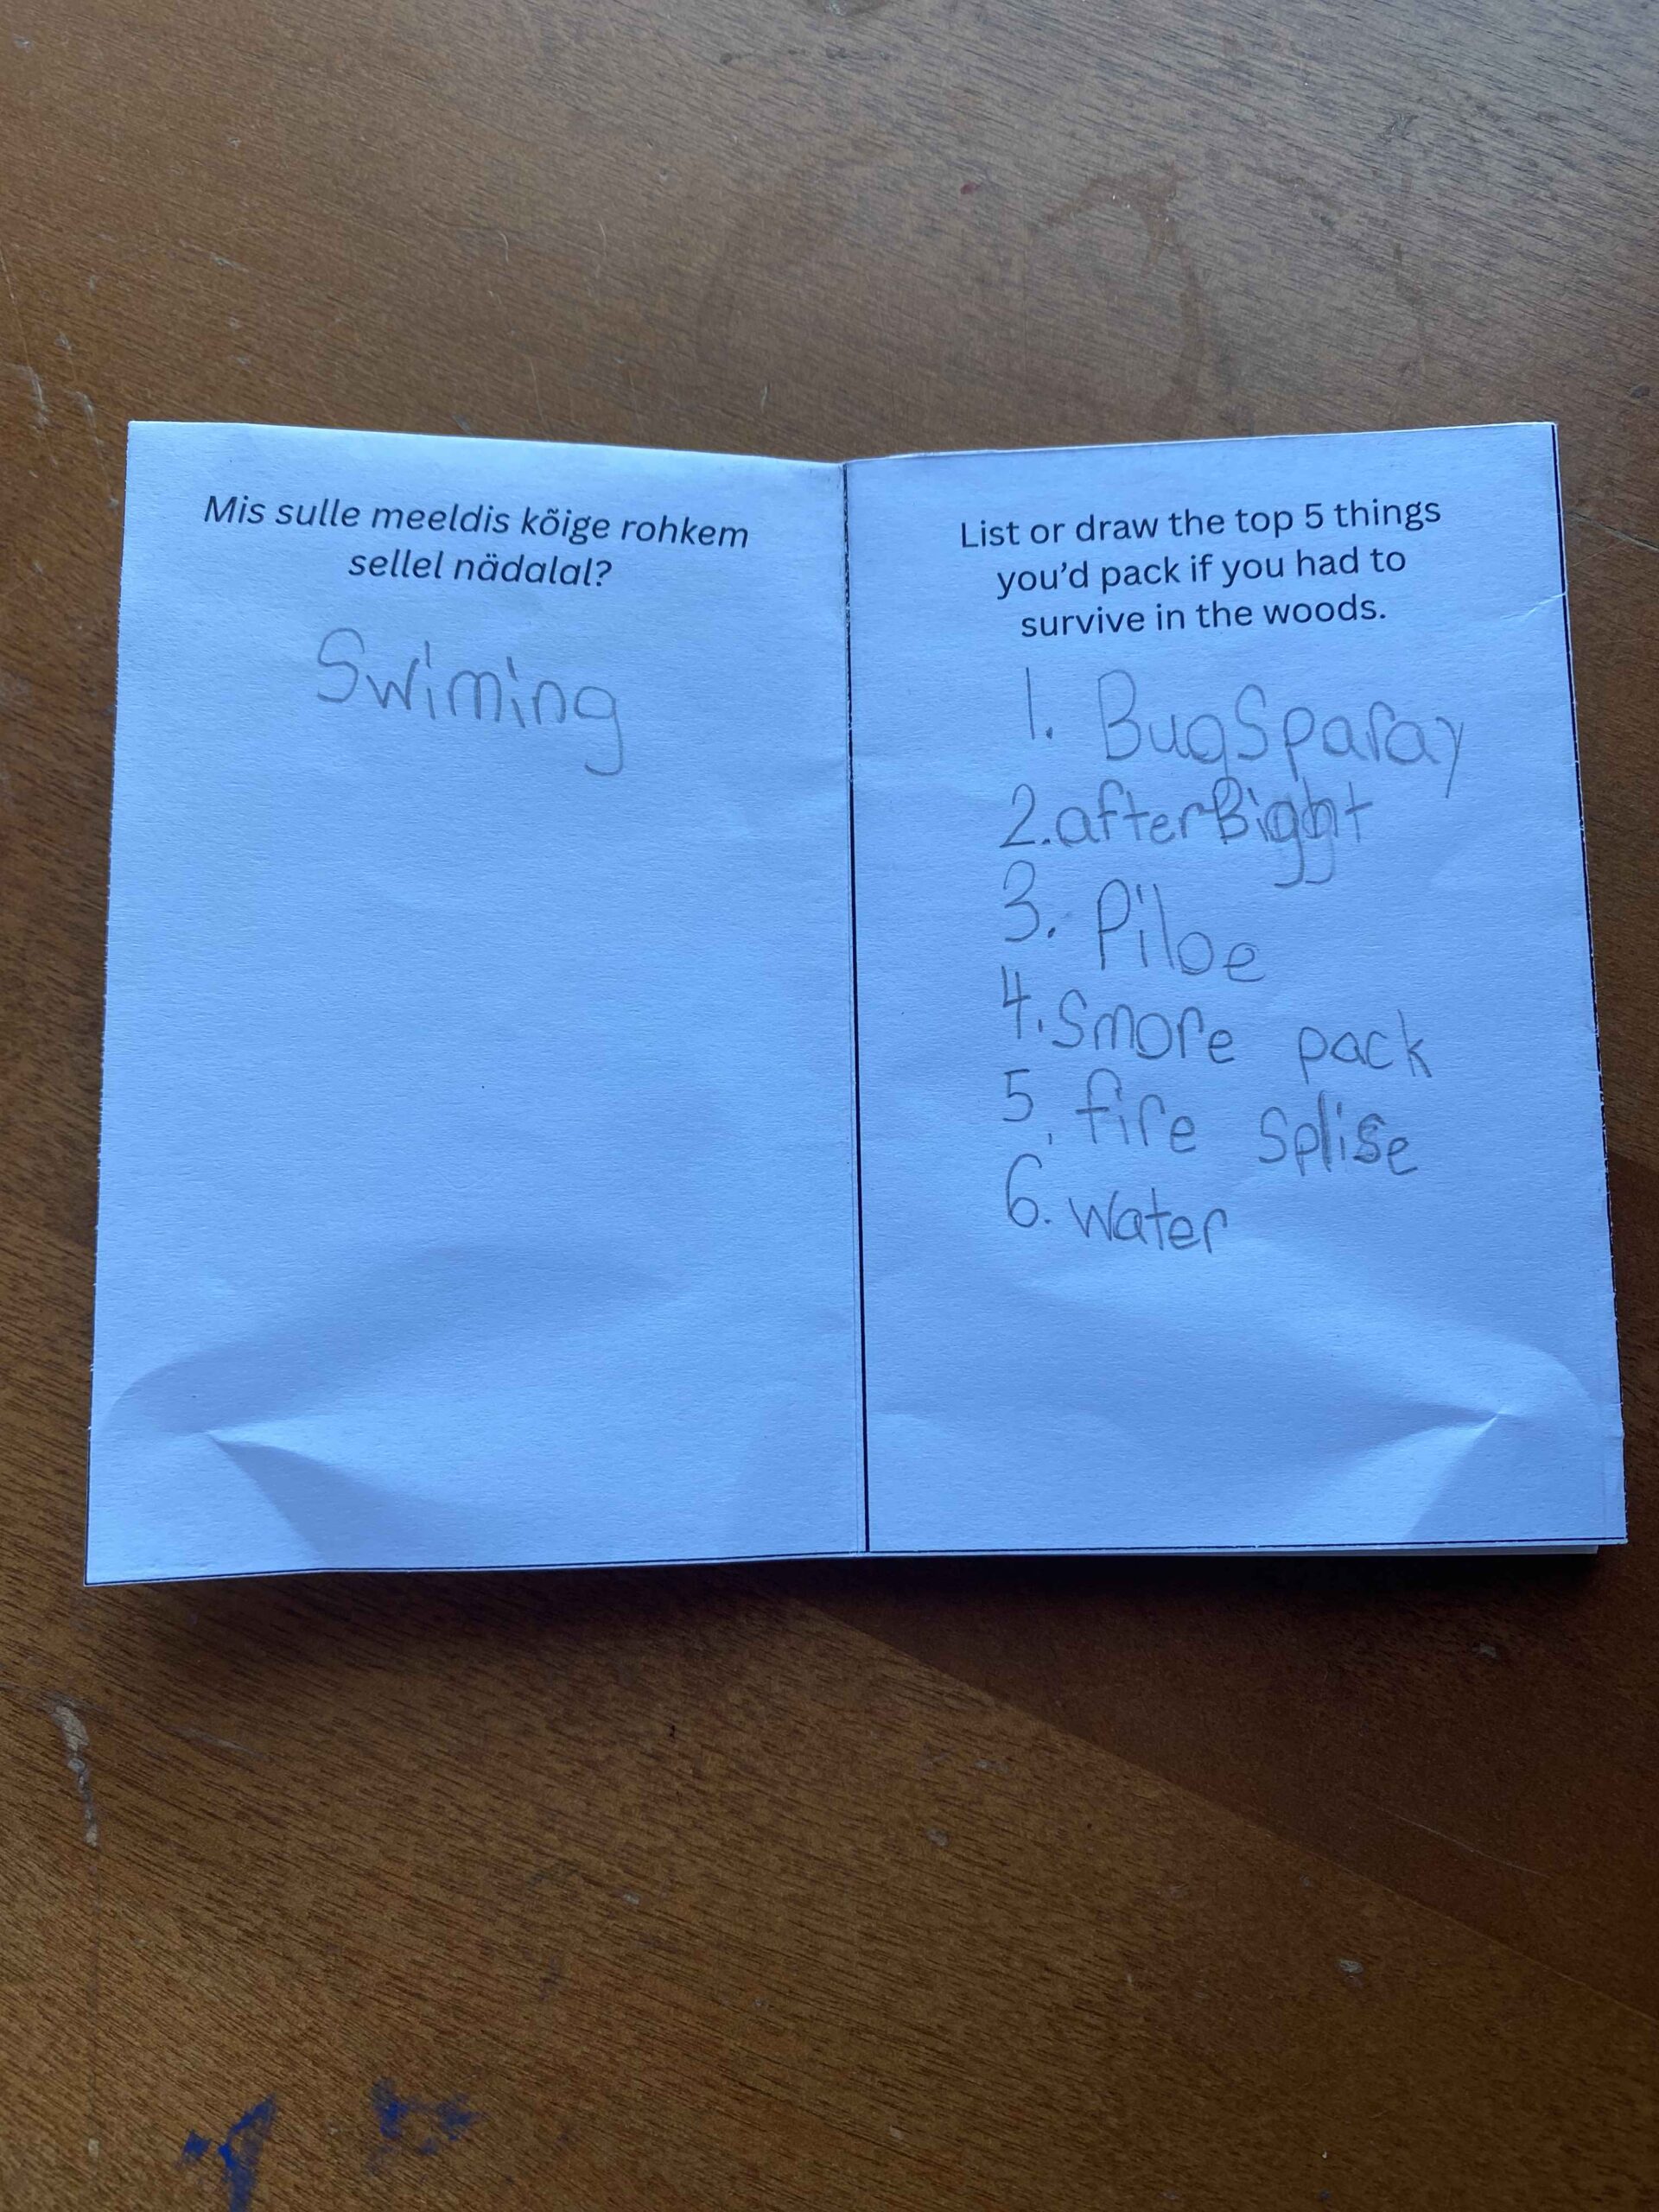 Mis sulle meeldis kõige rohkem
sellel nädalal?
Swiming
List or draw the top 5 things
you'd pack if you had to
survive in the woods.
1. BugSparay
2. afterBigght
3. Piloe
4. Smore pack
5. fire Splise
6. water